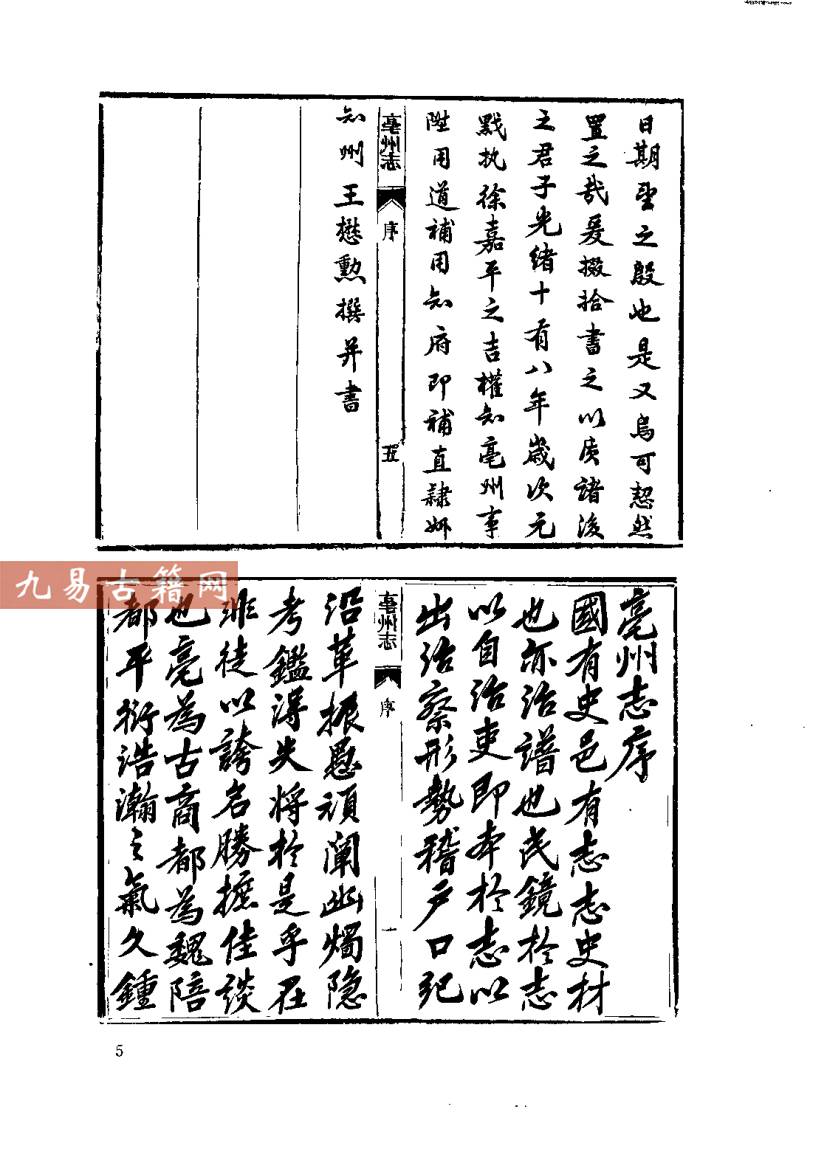 日期聖之殷也是又烏可恝然
置之哉爰掇拾書之以质諸後
之君子光緒十有八年歲次元
黓执徐嘉平之吉權知亳州事
陞用道補用知府即補直隸州
知州王懋勳撰并書
亳州志
序
五
亳州志序
國有史邑有志志史材
也亦治譜也民鏡於志
以自治吏即本於志以
出治察形勢稽户口紀
亳州志
序
一
沿革振愚頑闡幽燭隐
考鑑得失将於是乎在
非徒以誇名勝摭佳談
也亳為古商都為魏陪
都平衍浩瀚之氣久鍾
九易古籍网
5